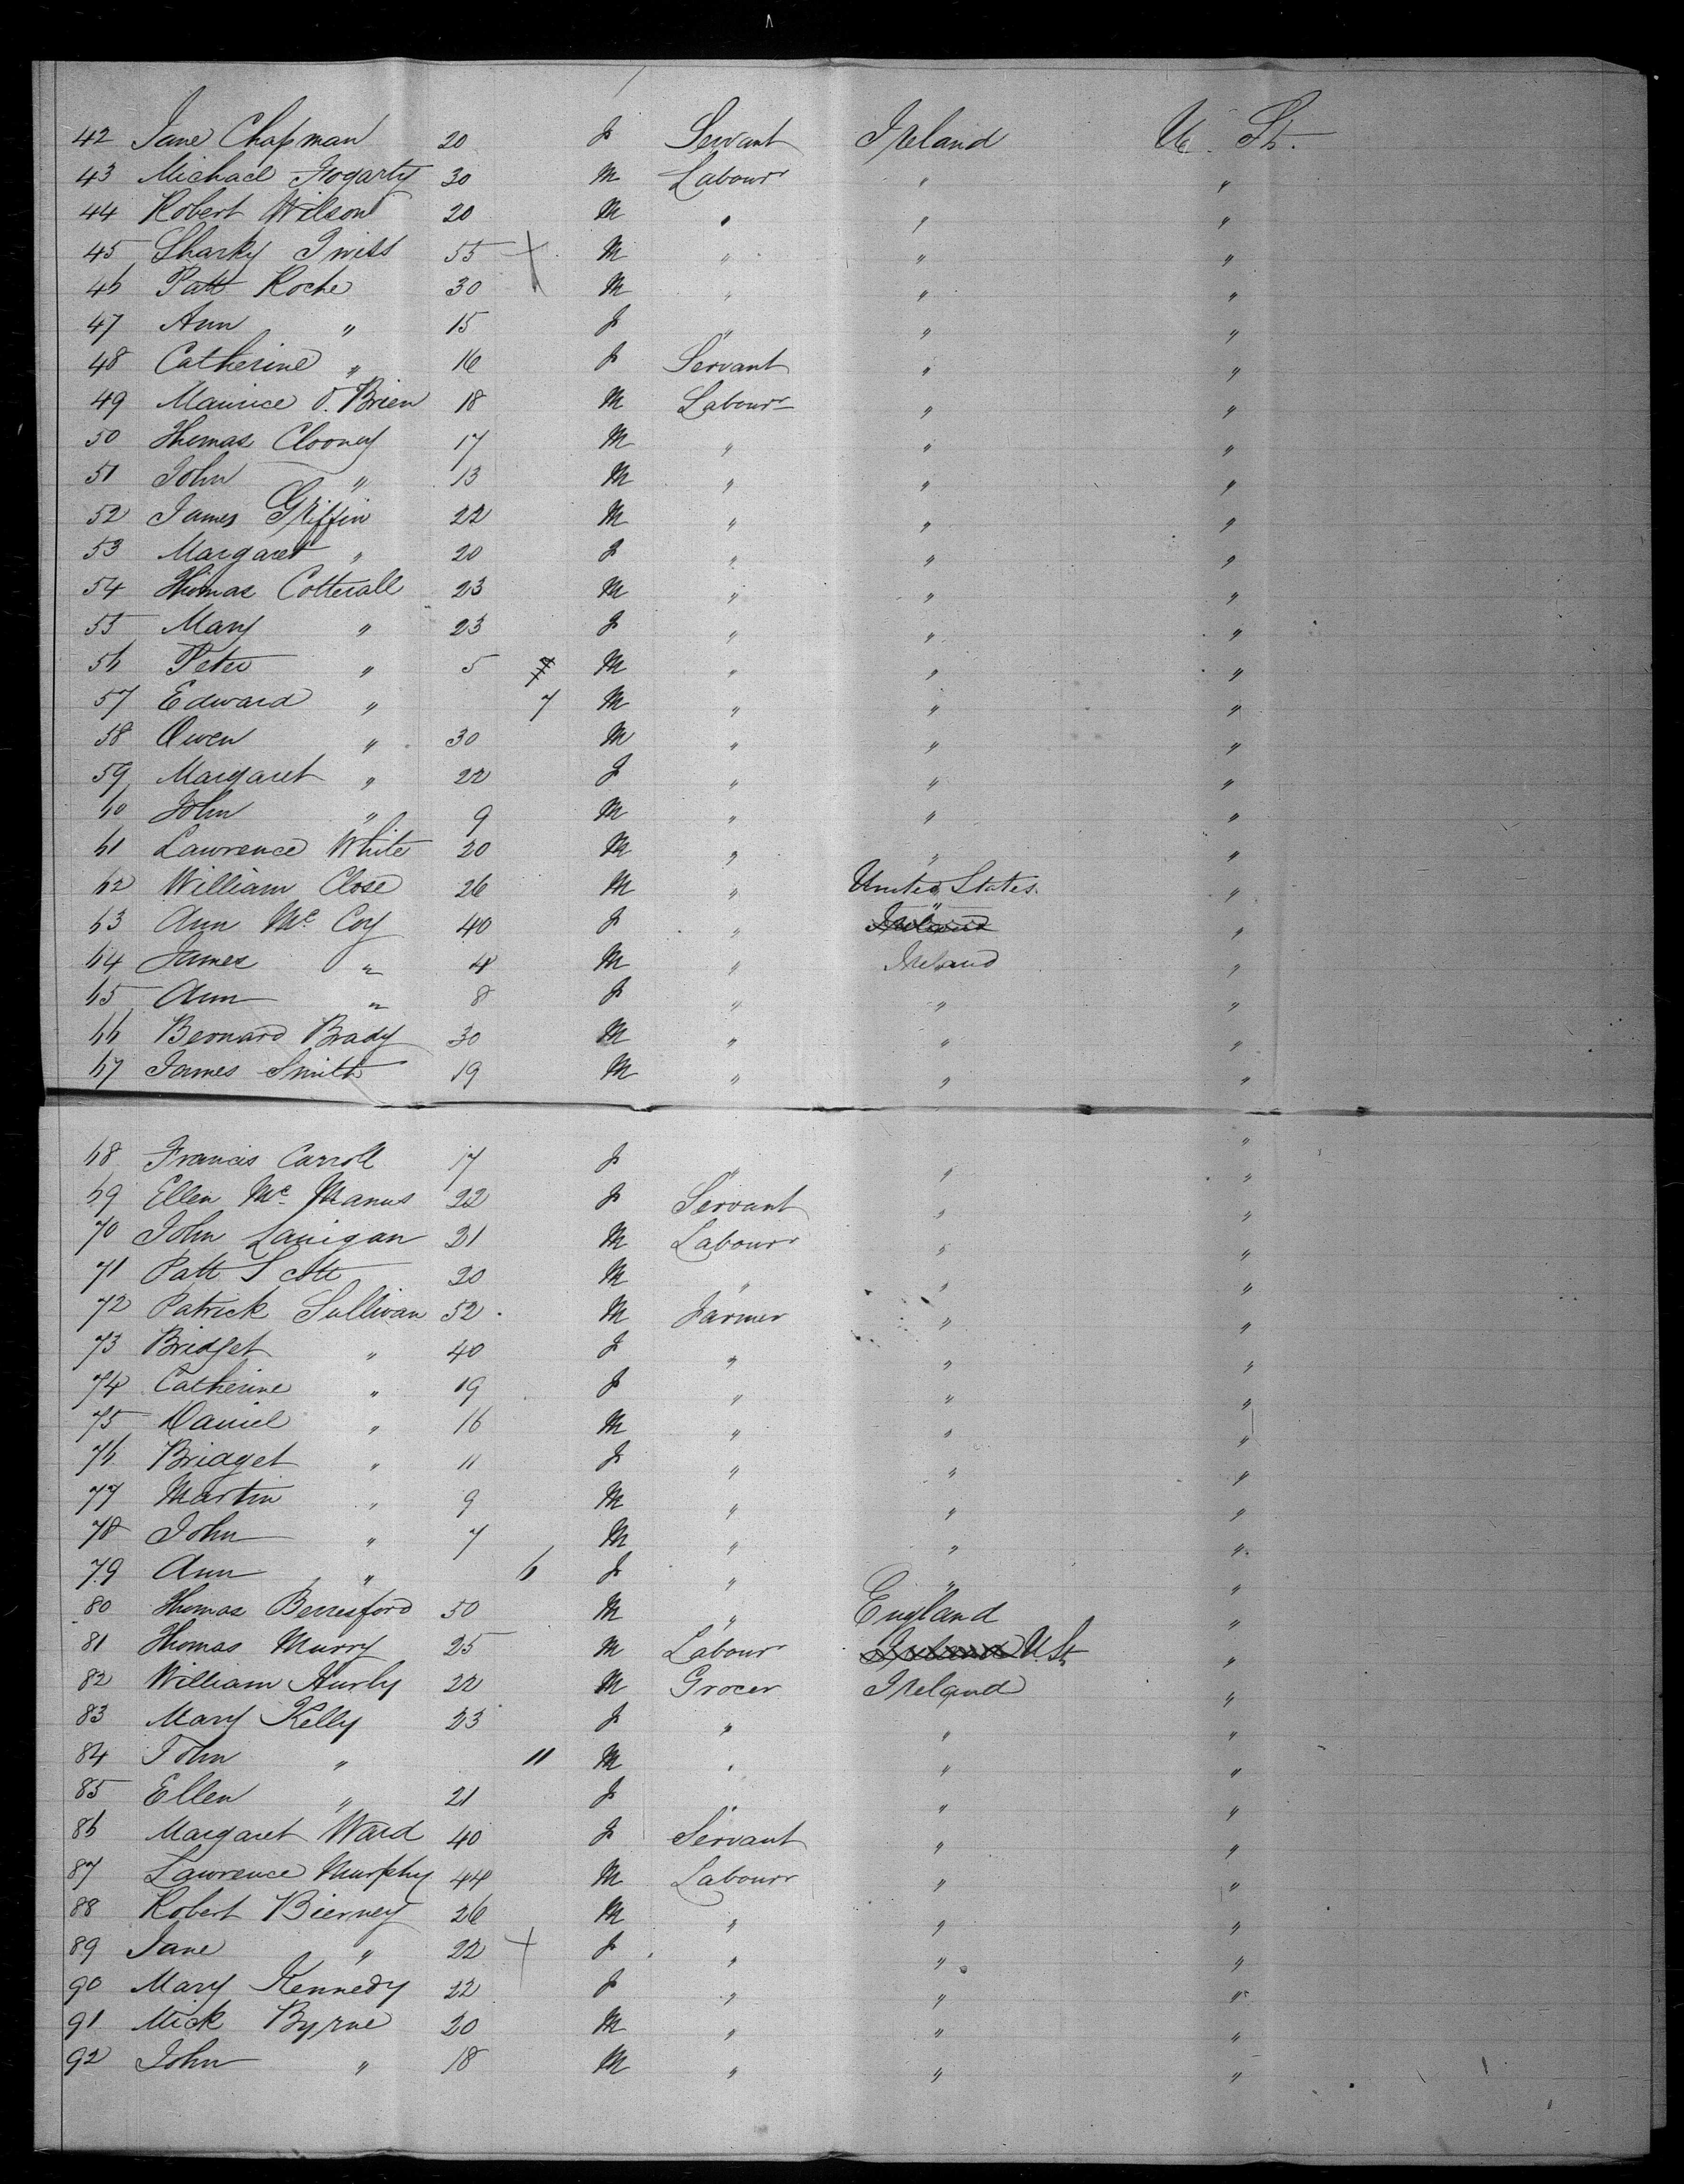 42 Jane Chapman 20 F Servant Ireland U. St.
43 Michael Fogarty 30 M Labourr " "
44 Robert Wilson 20 M " " "
45 Sharky Twiss 55 M " " "
46 Patt Roche 30 M " " "
47 Ann " 15 F " " "
48 Catherine " 16 F Servant " "
49 Maurice O'Brien 18 M Labourr " "
50 Thomas Clooney 17 M " " "
51 John " 13 M " " "
52 James Griffin 22 M " " "
53 Margaret " 20 F " " "
54 Thomas Cotterall 23 M " " "
55 Mary " 23 F " " "
56 Peter " 5 M " " "
57 Edward " 7 M " " "
58 Owen " 30 M " " "
59 Margaret " 22 F " " "
60 John " 9 M " " "
61 Lawrence White 20 M " " "
62 William Close 26 M " United States "
63 Ann Mc Coy 40 F " " Ireland "
64 James " 4 M " Ireland "
65 Ann " 8 F " " "
66 Bernard Brady 30 M " " "
67 James Smith 19 M " " "
68 Francis Carroll 17 F " " "
69 Ellen Mc Manus 22 F Servant " "
70 John Lanigan 21 M Labourr " "
71 Patt Scott 20 M " " "
72 Patrick Sullivan 52 M Farmer " "
73 Bridget " 40 F " " "
74 Catherine " 19 F " " "
75 Daniel " 16 M " " "
76 Bridget " 11 F " " "
77 Martin " 9 M " " "
78 John " 7 M " " "
79 Ann " 6 F " " "
80 Thomas Berresford 50 M " England "
81 Thomas Murry 25 M Labourr Ireland U. St. "
82 William Hurly 22 M Grocer Ireland "
83 Mary Kelly 23 F " " "
84 John " 11 M " " "
85 Ellen " 21 F " " "
86 Margaret Ward 40 F Servant " "
87 Lawrence Murphy 44 M Labourr " "
88 Robert Bierney 26 M " " "
89 Jane " 22 F " " "
90 Mary Kennedy 22 F " " "
91 Mick Byrne 20 M " " "
92 John " 18 M " " "